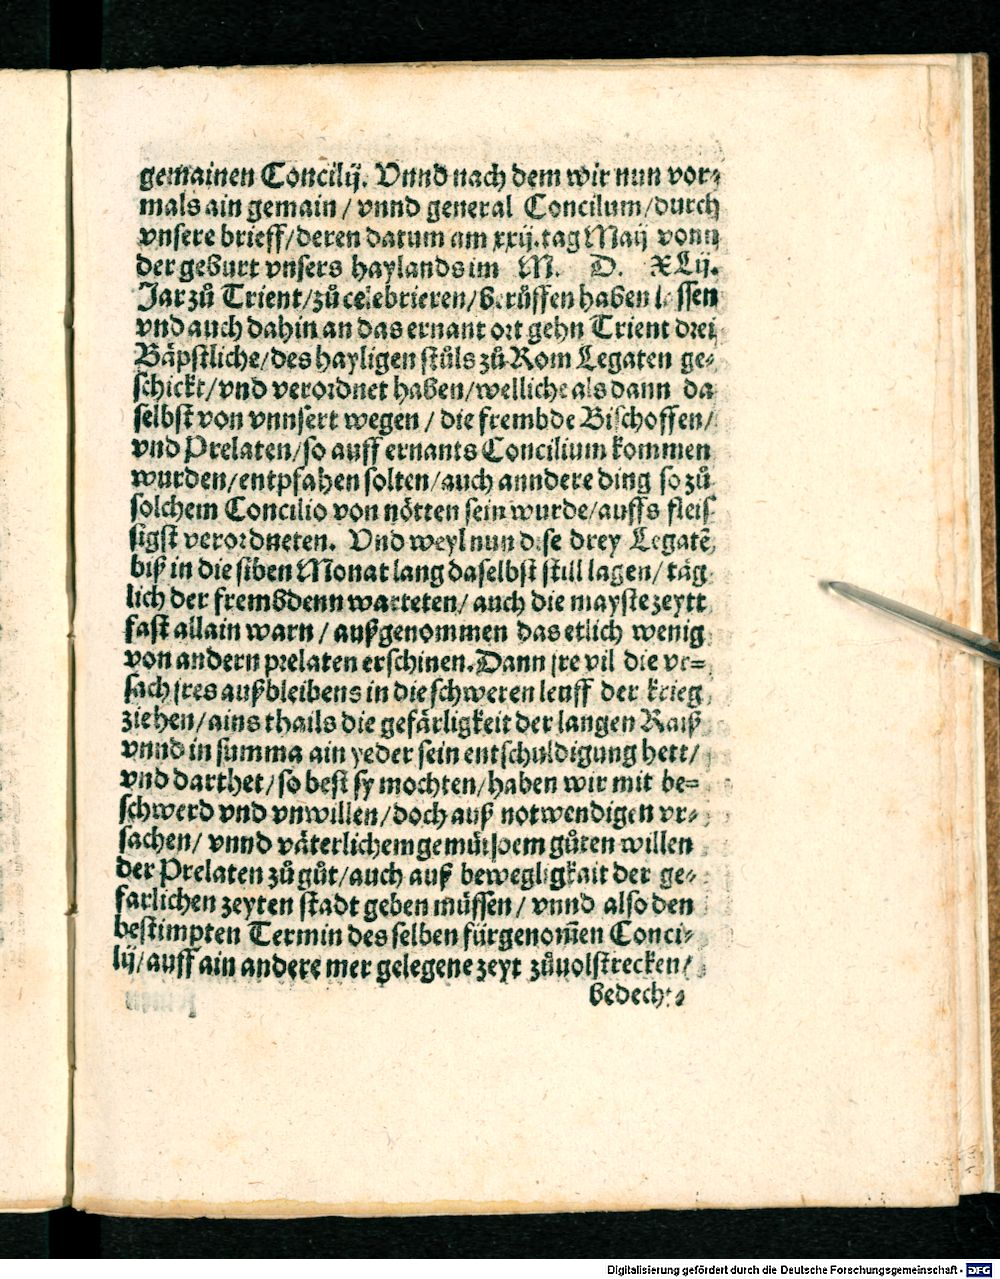 gemainen Concilij. Vnnd nach dem wir nun vor⸗
mals ain gemain / vnnd general Concilum/durch
vnsere brieff/deren datum am xxij.tag Maij vonn
der geburt vnsers haylands im M. D. XLij.
Jar zů Trient/zů celebrieren/berůffen haben lassen
vnd auch dahin an das ernant ort gehn Trient drei
Bäpstliche/des hayligen stůls zů Rom Legaten ge⸗
schickt/vnd verordnet haben/welliche als dann da
selbst von vnnsert wegen / die frembde Bischoffen/
vnd Prelaten/so auff ernants Concilium kommen
wurden/entpfahen solten/auch anndere ding so zů
solchem Concilio von nötten sein wurde/auffs fleis
sigst verordneten. Vnd weyl nun dise drey Legatẽ
biß in die siben Monat lang daselbst still lagen/ täg
lich der frembdenn warteten/ auch die mayste zeytt
fast allain warn / außgenommen das etlich wenig
von andern prelaten erschinen. Dann jre vil die vr⸗
sach jres außbleibens in die schweren leuff der krieg
ziehen/ains thails die gefärligkeit der langen Raiß
vnnd in summa ain yeder sein entschuldigung hett/
vnd darthet/so best sy mochten/haben wir mit be⸗
schwerd vnd vnwillen/doch auß notwendigen vr⸗
sachen/ vnnd väterlichem gemüt dem gůten willen
der Prelaten zů gůt/auch auß bewegligkait der ge⸗
farlichen zeyten stadt geben müssen / vnnd also den
bestimpten Termin des selben fürgenom̃en Conci⸗
lij/auff ain andere mer gelegene zeyt zůuolstrecken/
bedecht⸗
Digitalisierung gefördert durch die Deutsche Forschungsgemeinschaft - DFG